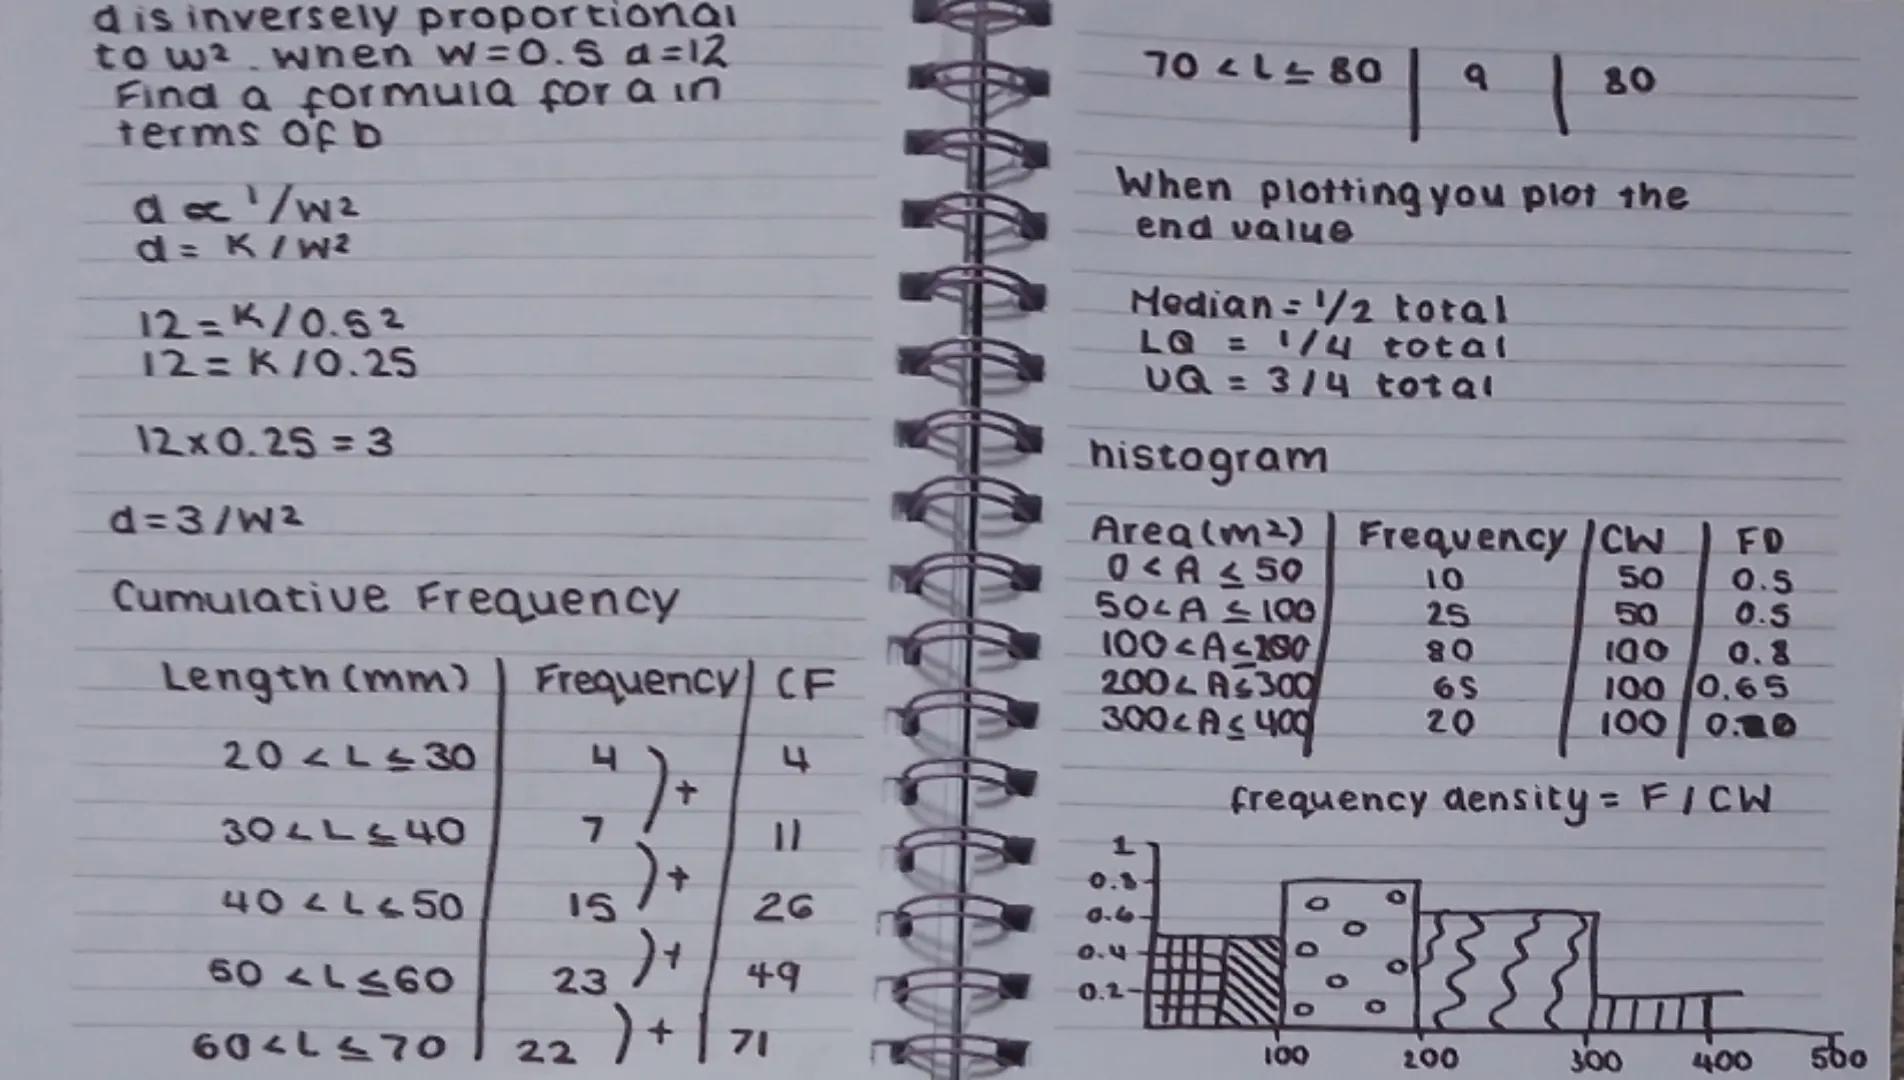 d is inversely proportional
to w². when w=0.5 d=12
Find a formula for a in
terms of b
d ∝ 1/w²
d = K/w²
12 = K/0.5²
12 = K/0.25
12x0.25 = 3
d = 3/w²
Cumulative Frequency
Length (mm) | Frequency | CF
20 < L ≤ 30 | 4 | 4
+
30 < L ≤ 40 | 7 | 11
+
40 < L ≤ 50 | 15 | 26
+
50 < L ≤ 60 | 23 | 49
+
60 < L ≤ 70 | 22 | 71
70 < L ≤ 80 | 9 | 80
When plotting you plot the
end value
Median = 1/2 total
LQ = 1/4 total
UQ = 3/4 total
histogram
Area (m²) | Frequency | CW | FD
0 < A ≤ 50 | 10 | 50 | 0.5
50 < A ≤ 100 | 25 | 50 | 0.5
100 < A ≤ 200 | 80 | 100 | 0.8
200 < A ≤ 300 | 65 | 100 | 0.65
300 < A ≤ 400 | 20 | 100 | 0.20
frequency density = F / CW
1
0.8
0.6
0.4
0.2
100 200 300 400 500